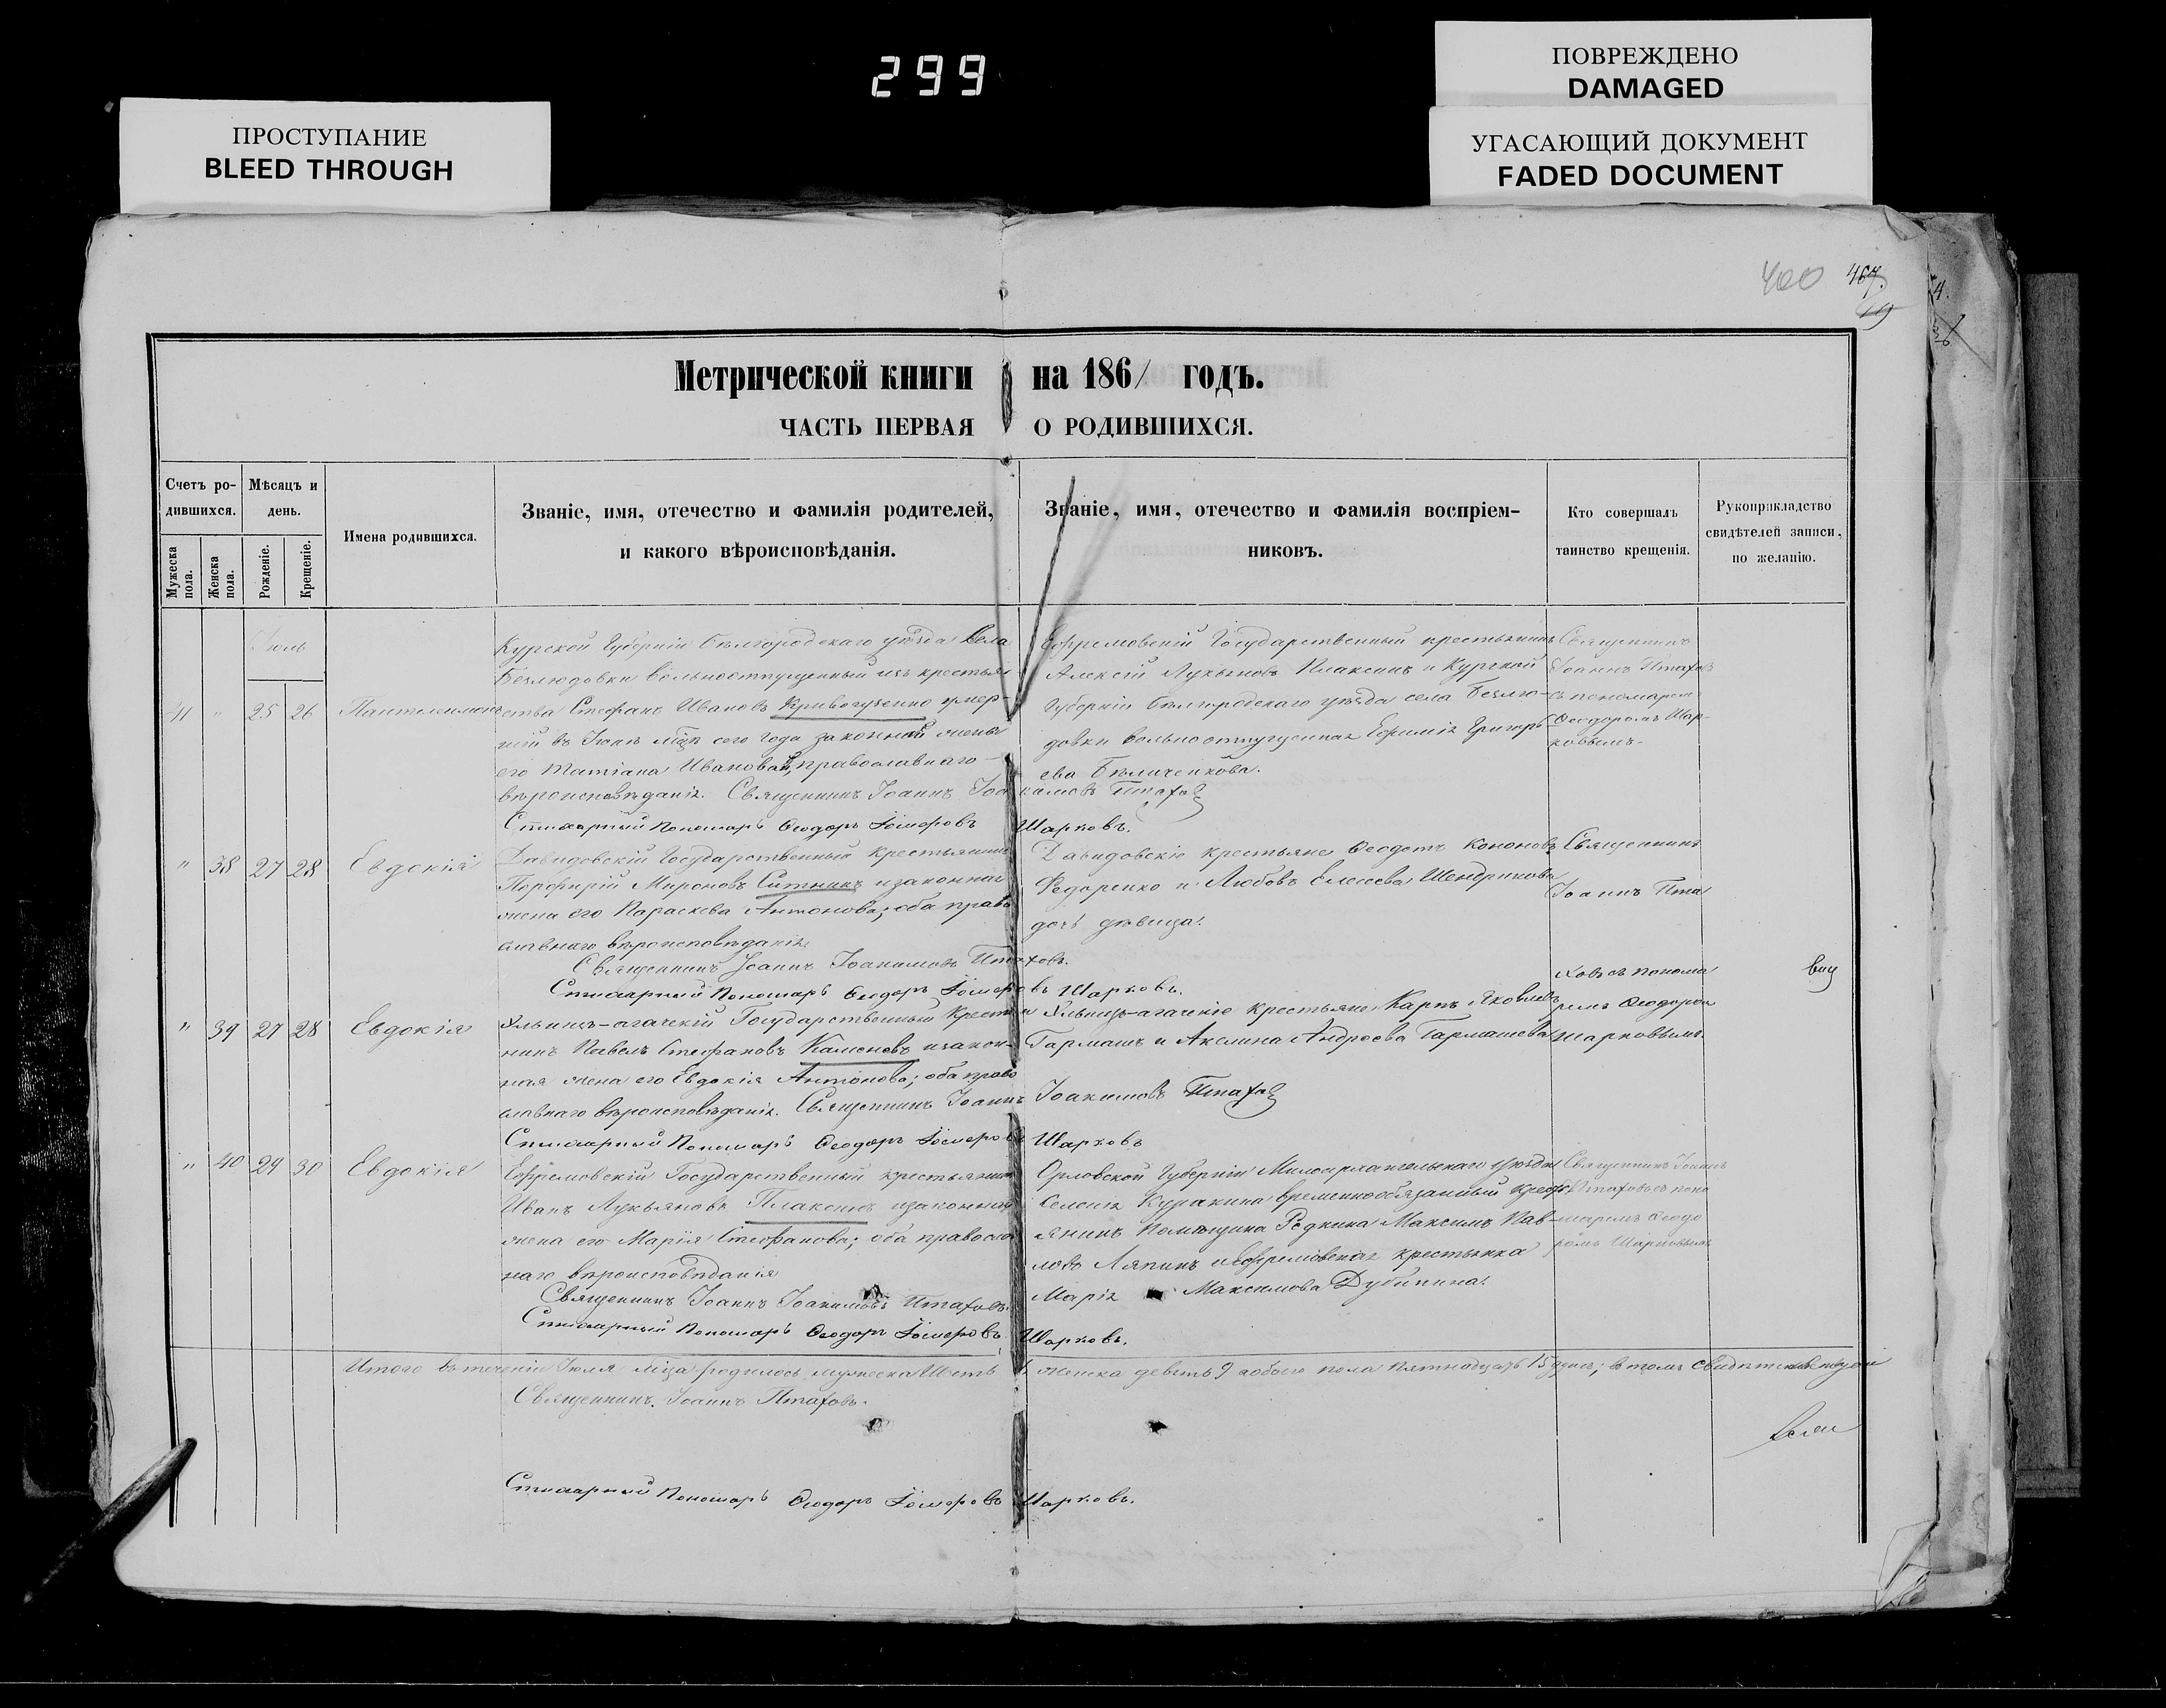 299
ПРОСТУПАНИЕ
BLEED THROUGH
ПОВРЕЖДЕНО
DAMAGED
УГАСАЮЩИЙ ДОКУМЕНТ
FADED DOCUMENT
400 467.
Метрической книги на 1861 годъ.
ЧАСТЬ ПЕРВАЯ О РОДИВШИХСЯ.
Счетъ ро-
дившихся.
Мужеска пола.
Женска пола.
Мѣсяцъ и
день.
Рожденіе.
Крещеніе.
Имена родившихся.
Званіе, имя, отечество и фамилія родителей,
и какого вѣроисповѣданія.
Званіе, имя, отечество и фамилія воспріем-
никовъ.
Кто совершалъ
таинство крещенія.
Рукоприкладство
свидѣтелей записи,
по желанію.
Іюль
41 " 25 26 Пантелеимонъ
Курской Губерніи Бѣлгородскаго уѣзда Села
Безлюдовки вольноотпущенный изъ крестьян
ства Стефанъ Ивановъ Кривогузенко умер-
шій въ Іюнѣ мцѣ сего года законная жена
его Татіана Иванова, православнаго
вѣроисповѣданія. Священникъ Іоаннъ Іоакимовъ Птаховъ
Стихарный Пономарь Ѳеодоръ Гомеровъ Шарковъ.
Ефремовскій Государственный крестьянинъ
Алексій Лукьяновъ Плаксинъ и Курской
Губерніи Бѣлгородскаго уѣзда села Безлю-
довки вольноотпущенная Ефимія Григорь-
ева Бѣличенкова.
Священникъ
Іоаннъ Птаховъ
съ пономаремъ
Ѳеодоромъ Шар-
ковымъ.
" 38 27 28 Евдокія
Давидовскій Государственный Крестьянинъ
Порфирій Мироновъ Ситникъ и законная
жена его Параскева Антонова; оба право
славнаго вѣроисповѣданія
Священникъ Іоаннъ Іоакимовъ Птаховъ.
Стихарный Пономарь Ѳеодоръ Гомеровъ Шарковъ.
Давидовскіе крестьяне Ѳеодотъ Кононовъ
Федоренко и Любовь Елисеева Шендрикова
дочь дѣвица.
Священникъ
Іоаннъ Пта
ховъ съ понома
ремъ Ѳеодоромъ
Шарковымъ.
" 39 27 28 Евдокія
Яльпугъ-агачскій Государственный Кресть
нинъ Павелъ Стефановъ Каменевъ и закон-
ная жена его Евдокія Антонова; оба право
славнаго вѣроисповѣданія. Священникъ Іоаннъ Іоакимовъ Птаховъ
Стихарный Пономарь Ѳеодоръ Гомеровъ Шарковъ
крестьяне Карпъ Яковлевъ
Гармашъ и Акелина Андреева Гармашева
" 40 29 30 Евдокія
Ефремовскій Государственный крестьянинъ
Иванъ Лукьяновъ Плаксинъ и законная
жена его Марія Стефанова; оба православ
наго вѣроисповѣданія
Священникъ Іоаннъ Іоакимовъ Птаховъ.
Стихарный Пономарь Ѳеодоръ Гомеровъ Шарковъ.
Орловской Губерніи Малоархангельскаго уѣзда
Селенія Куракина временнообязанный крест
янинъ Помѣщика Редкина Максимъ Пав-
ловъ Ляпинъ и Ефремовская крестьянка
Марія Максимова Дубинина.
Священникъ Іоаннъ
Птаховъ съ поно
маремъ Ѳеодо
ромъ Шарковымъ
Итого въ теченіи Іюля мца родилось мужеска Шесть женска девять 9 обоего пола пятнадцать 15 душъ; въ томъ свидѣтельствуемъ
Священникъ Іоаннъ Птаховъ.
Стихарный Пономарь Ѳеодоръ Гомеровъ Шарковъ.